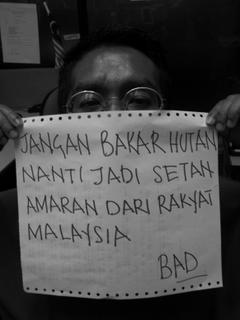 JANGAN BAKAR HUTAN
NANTI JADI SETAN
AMARAN DARI RAKYAT
MALAYSIA
BAD